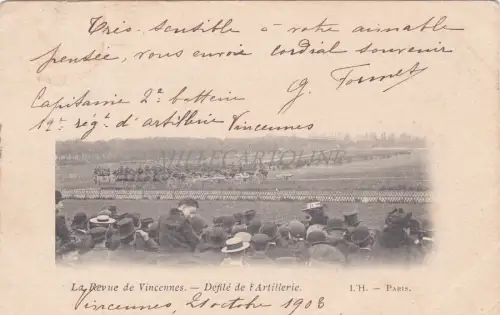 Très sensible à votre aimable
pensée, vous envoie cordial souvenir
G. Fournet
Capitaine 2e batterie
12e rég. d'artillerie Vincennes
MILLECARTOLINE
La Revue de Vincennes. — Defilé de l'Artillerie. L'H. — Paris.
Vincennes, 21 octobre 1903